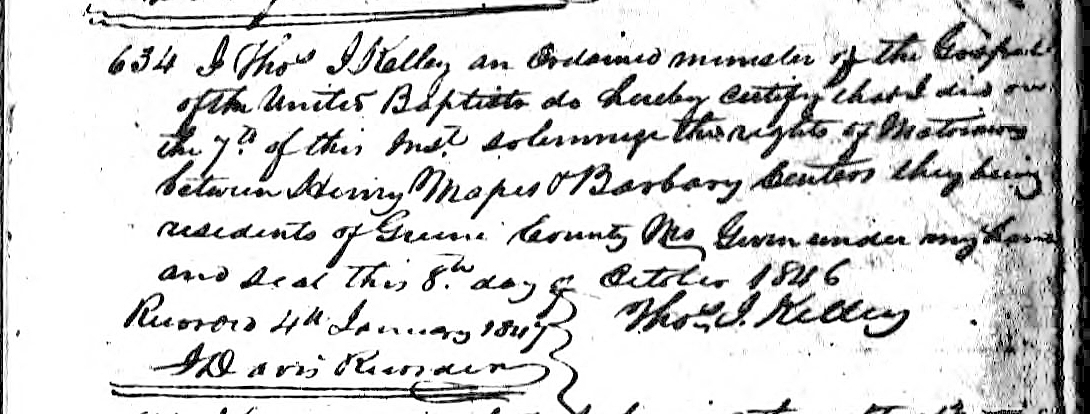 634 I Thos I Kelley an Ordained minister of the Gospel
of the United Baptists do hereby certify that I did on
the 7th of this Inst. solemnize the rights of Matrimony
between Henry Mapes & Barbary Centers they being
residents of Greene County Mo Given under my hand
and seal this 8th day of October 1846
Thos. J. Kelley
Record 4th January 1847
J Davis Recorder